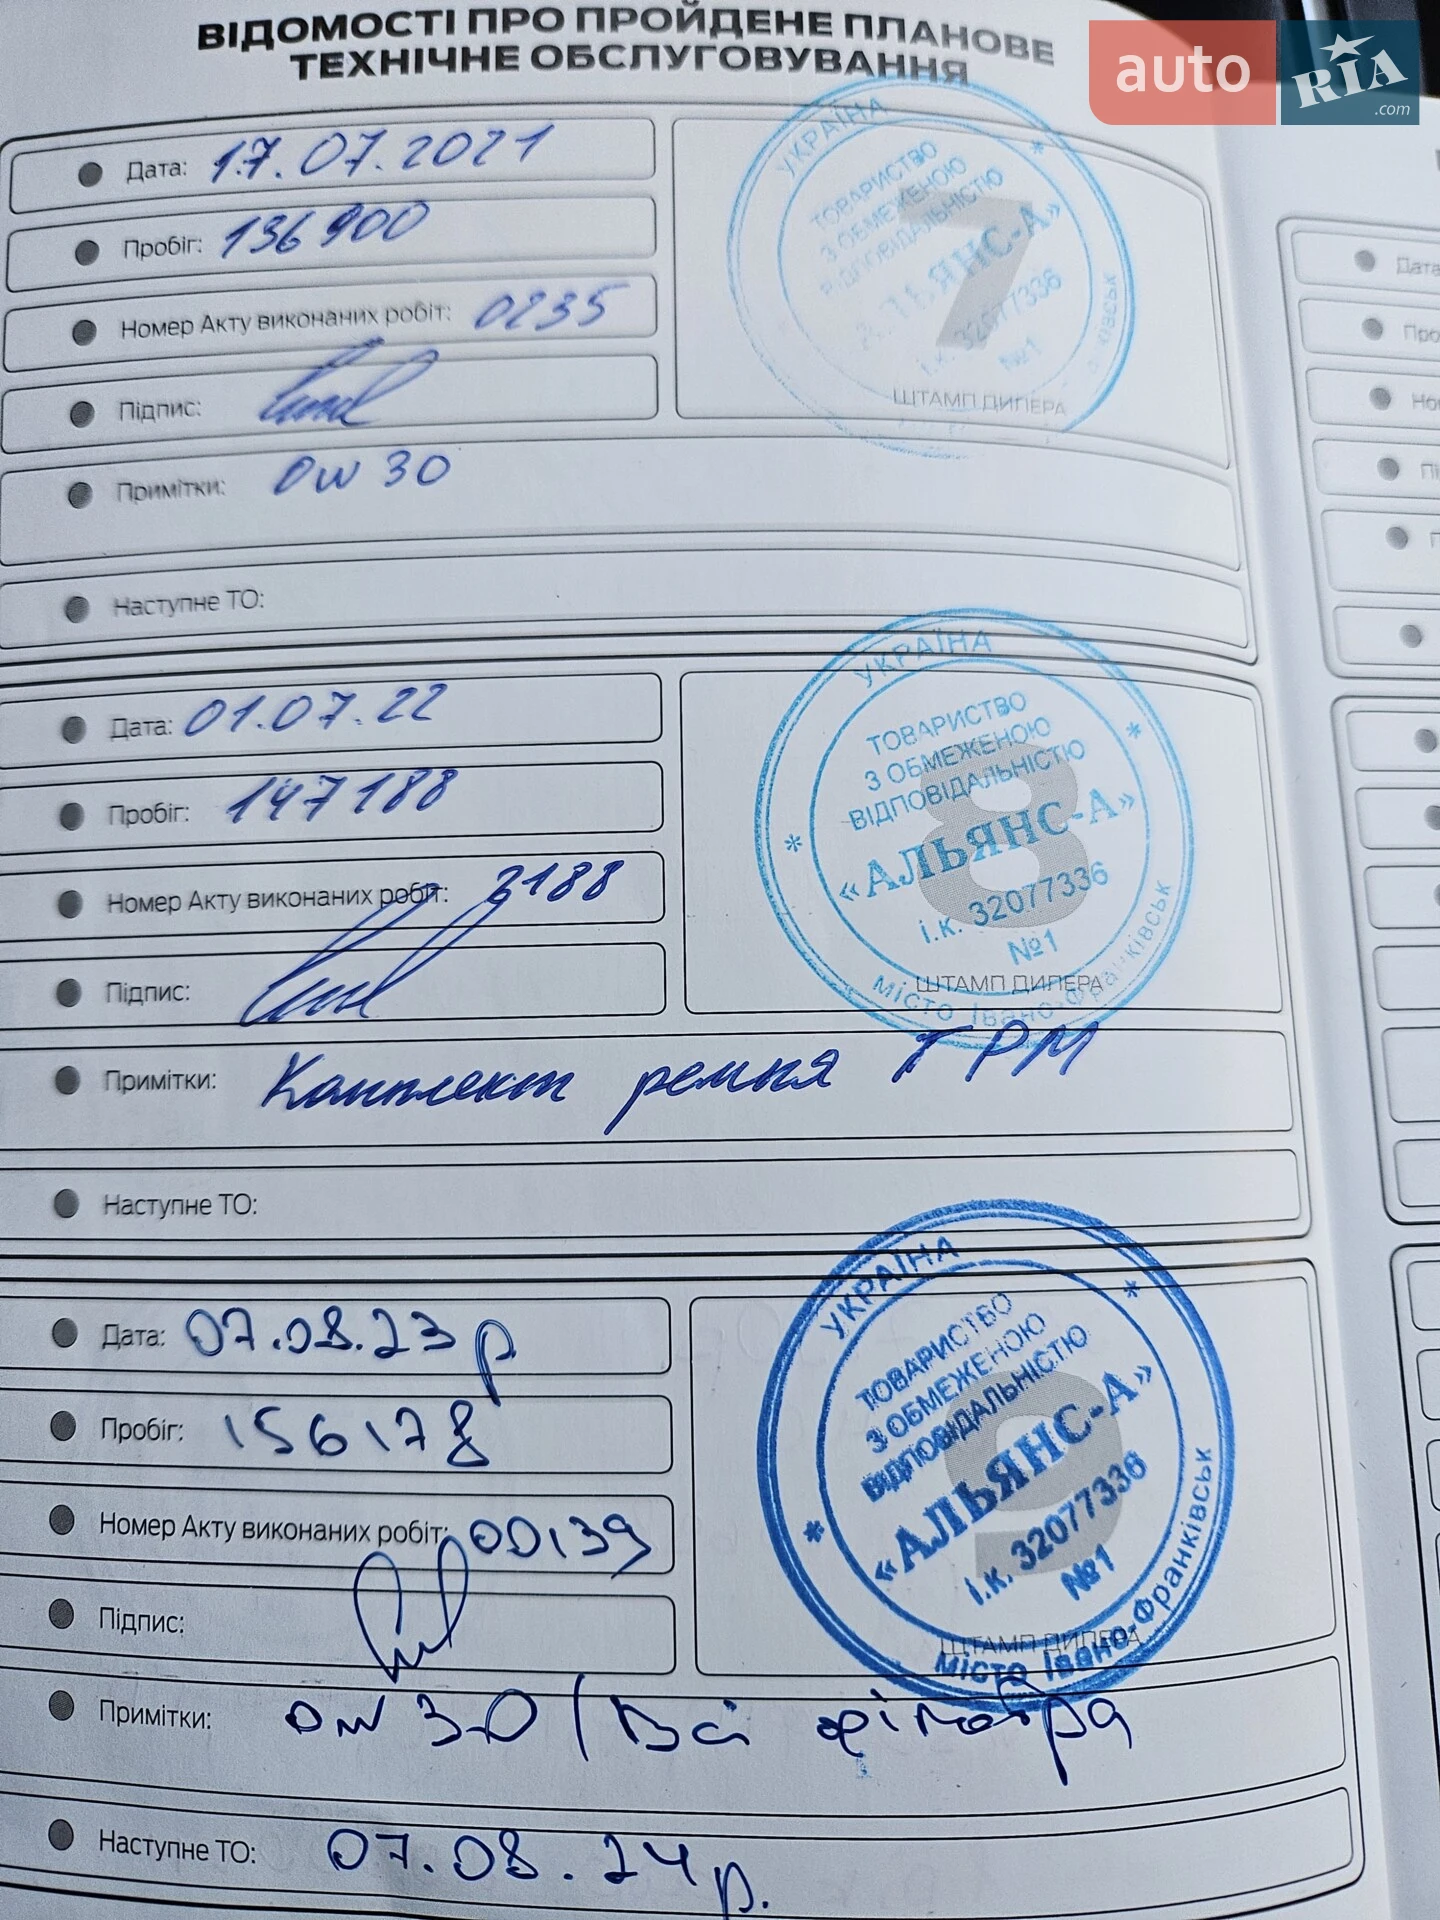 ВІДОМОСТІ ПРО ПРОЙДЕНЕ ПЛАНОВЕ
ТЕХНІЧНЕ ОБСЛУГОВУВАННЯ
auto RIA .com
Дата: 17.07.2021
Пробіг: 136900
Номер Акту виконаних робіт: 0235
Підпис:
Примітки: 0w 30
Наступне ТО:
7
УКРАЇНА
ТОВАРИСТВО
З ОБМЕЖЕНОЮ
ВІДПОВІДАЛЬНІСТЮ
і.к. 32077336
№1
ШТАМП ДИЛЕРА
Дата: 01.07.22
Пробіг: 147188
Номер Акту виконаних робіт: 3188
Підпис:
Примітки: Комплект ремня ГРМ
Наступне ТО:
8
УКРАЇНА
ТОВАРИСТВО
З ОБМЕЖЕНОЮ
ВІДПОВІДАЛЬНІСТЮ
«АЛЬЯНС-А»
і.к. 32077336
№1
ШТАМП ДИЛЕРА
Місто Івано-Франківськ
Дата: 07.08.23 р
Пробіг: 156178
Номер Акту виконаних робіт: 00139
Підпис:
Примітки: 0w 30 / Всі фільтра
Наступне ТО: 07.08.24р.
9
УКРАЇНА
ТОВАРИСТВО
З ОБМЕЖЕНОЮ
ВІДПОВІДАЛЬНІСТЮ
«АЛЬЯНС-А»
і.к. 32077336
№1
ШТАМП ДИЛЕРА
Місто Івано-Франківськ
Дата